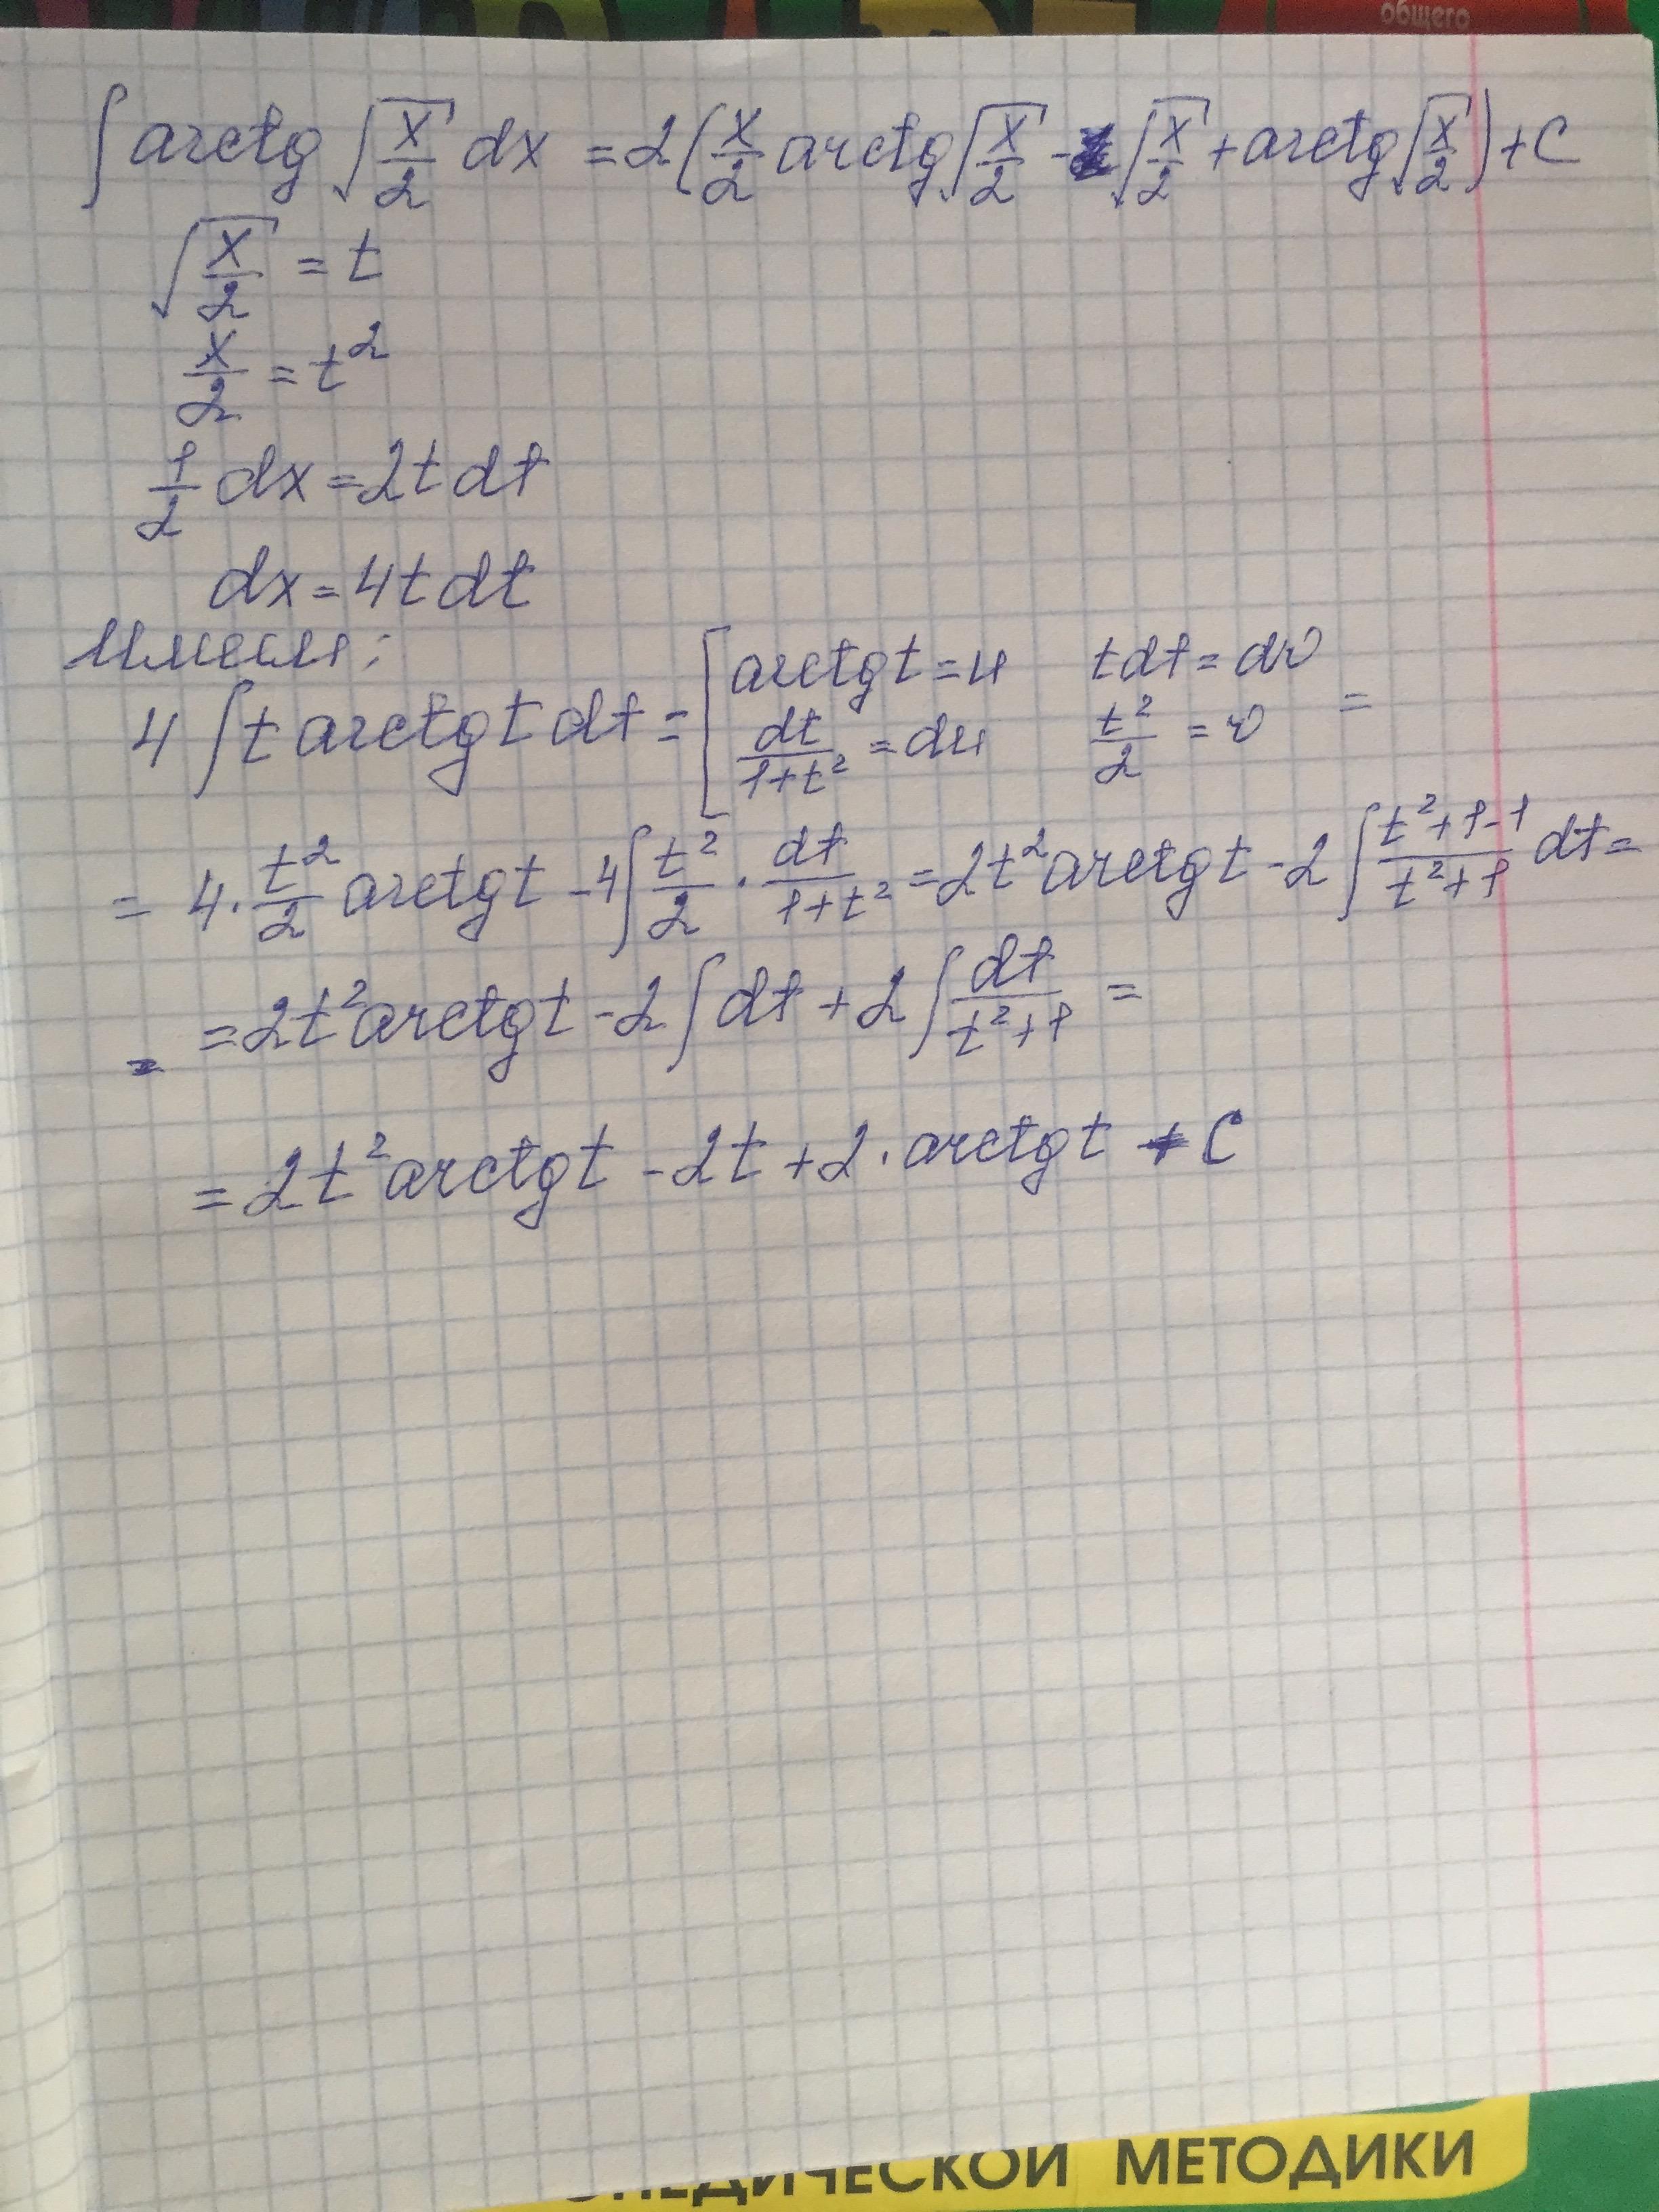 общего
∫ arctg √(x/2) dx = 2(x/2 arctg √(x/2) - √(x/2) + arctg √(x/2)) + C
√(x/2) = t
x/2 = t²
1/2 dx = 2t dt
dx = 4t dt
Имеем:
4 ∫ t arctg t dt = [ arctg t = u    t dt = dv
dt/(1+t²) = du    t²/2 = v =
= 4 · t²/2 arctg t - 4 ∫ t²/2 · dt/(1+t²) = 2t² arctg t - 2 ∫ (t²+1-1)/(t²+1) dt =
= 2t² arctg t - 2 ∫ dt + 2 ∫ dt/(t²+1) =
= 2t² arctg t - 2t + 2 · arctg t + C
МЕТОДИКИ